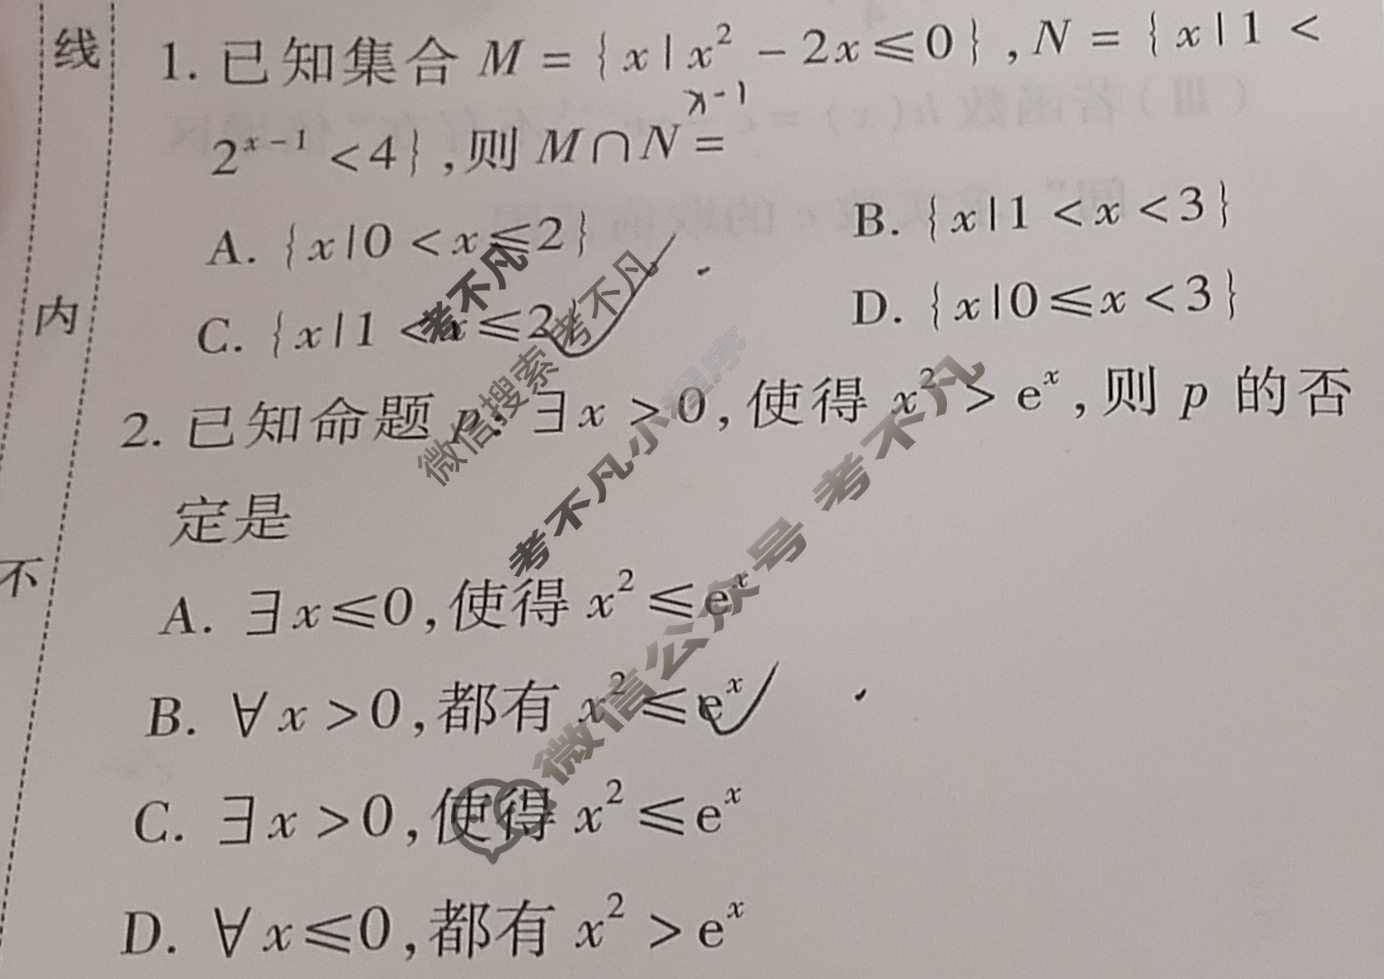 线
内
不
1. 已知集合 M = {x|x² - 2x ≤ 0}, N = {x|1 <
x-1
2ˣ⁻¹ < 4}, 则 M∩N =
A. {x|0 < x ≤ 2}
B. {x|1 < x < 3}
C. {x|1 < x ≤ 2}
D. {x|0 ≤ x < 3}
2. 已知命题 p: ∃x > 0, 使得 x² > eˣ, 则 p 的否
定是
A. ∃x ≤ 0, 使得 x² ≤ eˣ
B. ∀x > 0, 都有 x² ≤ eˣ
C. ∃x > 0, 使得 x² ≤ eˣ
D. ∀x ≤ 0, 都有 x² > eˣ
考不凡
微信搜索 考不凡
考不凡小程序
微信公众号 考不凡